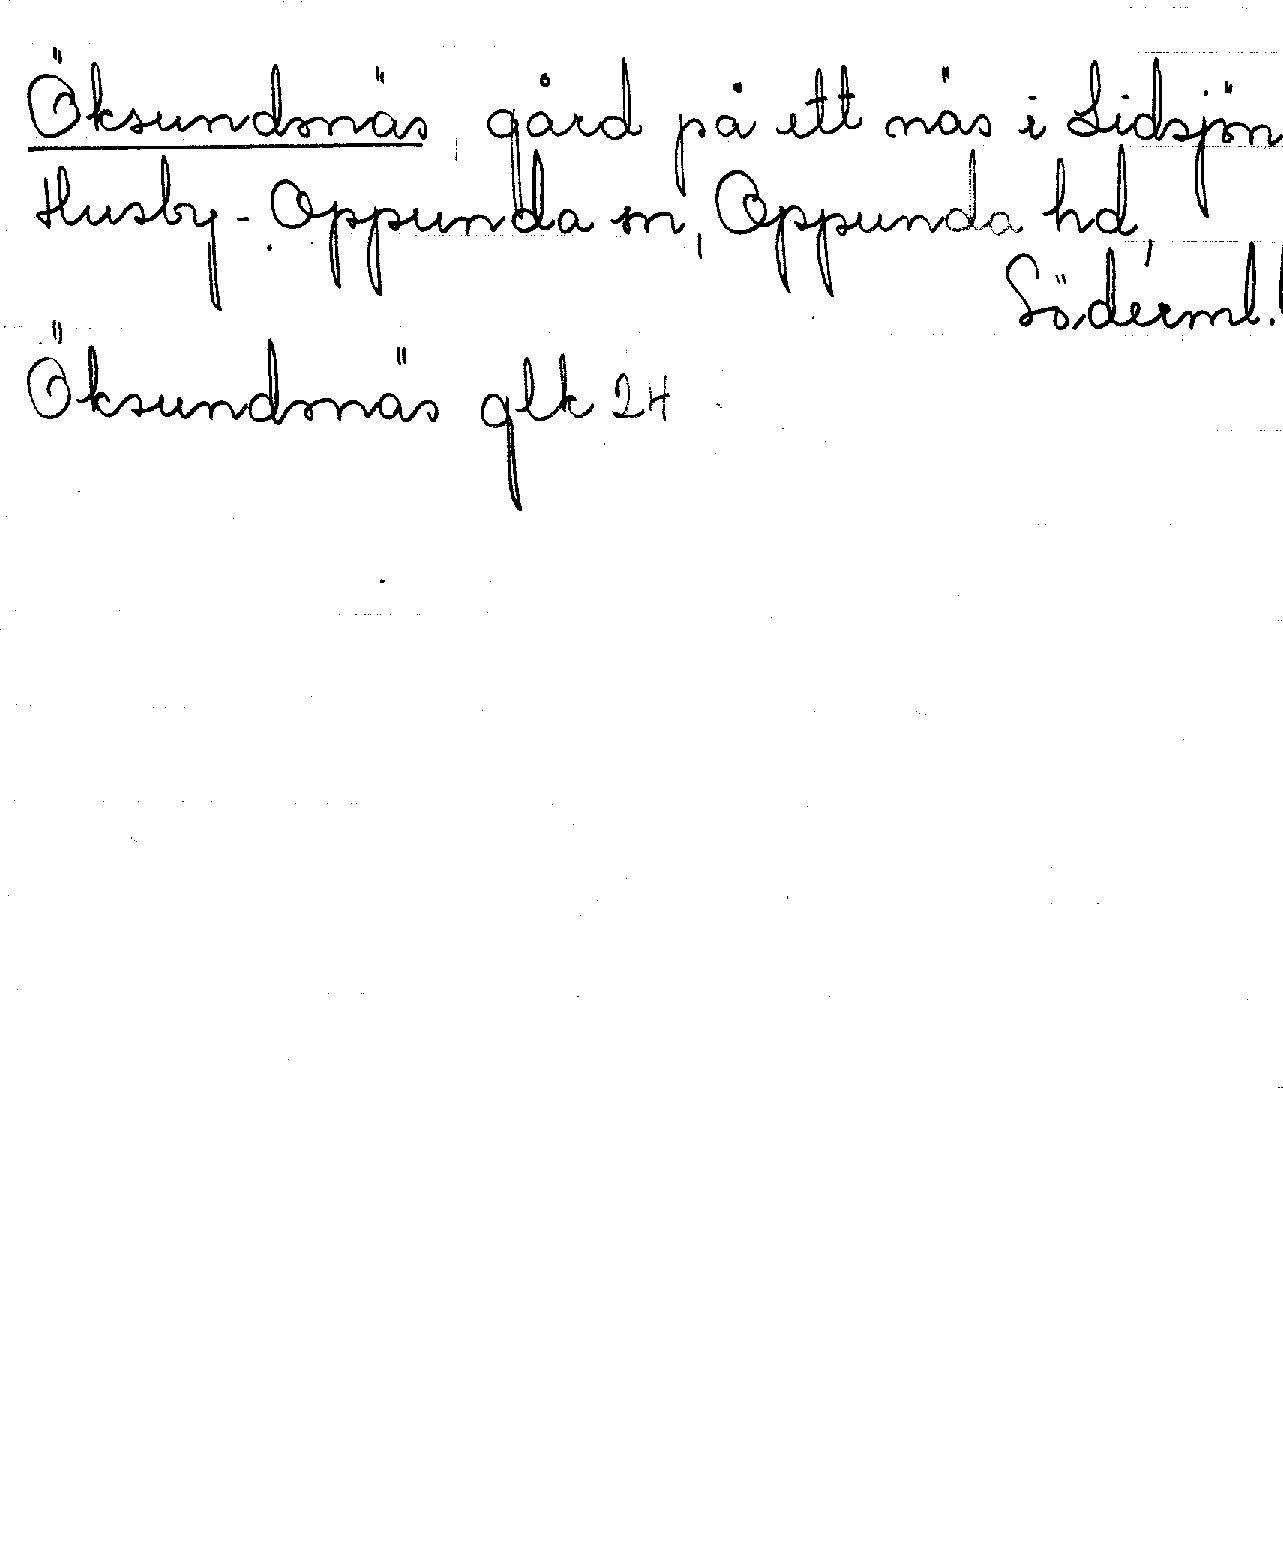 Öksundsnäs, gård på ett näs i Lidsjön
Husby-Oppunda sn, Oppunda hd,
Söderml.
Öksundsnäs glk 24